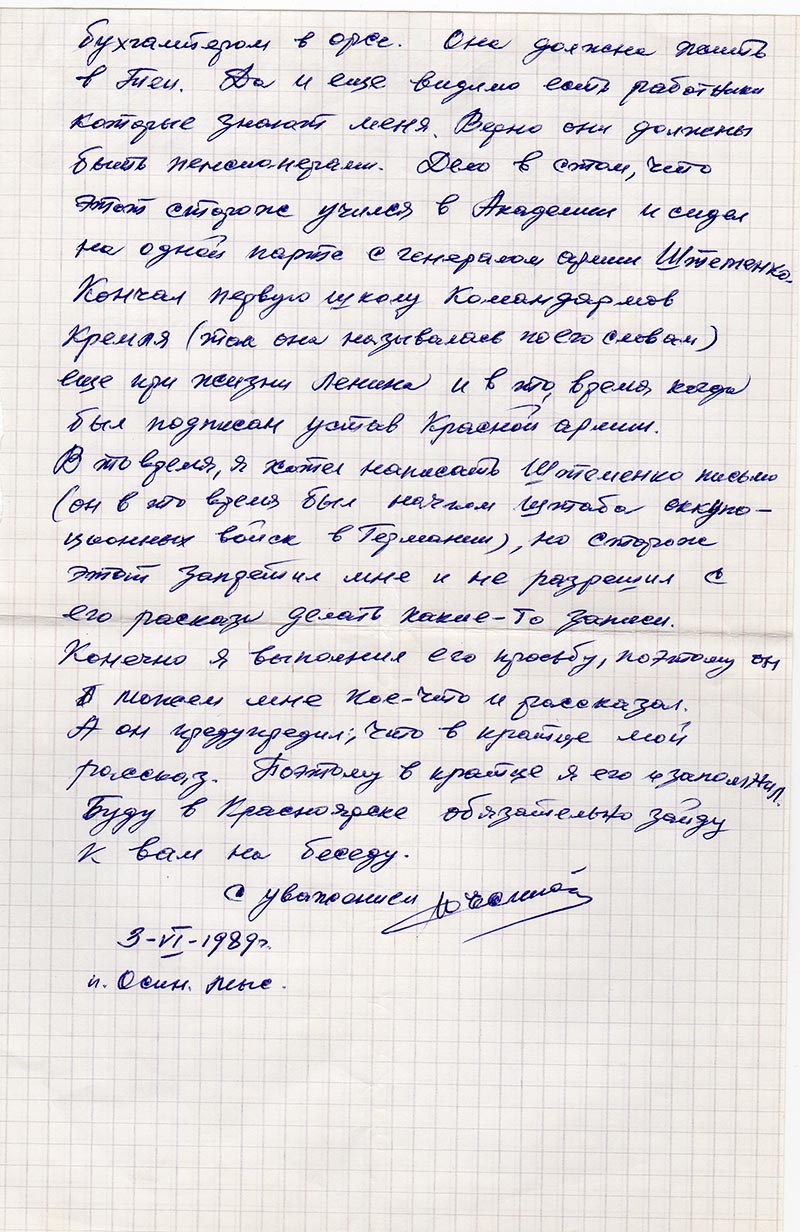 бухгалтером в орсе. Она должна жить
в Теи. Да и еще видимо есть работники
которые знают меня. Верно они должны
быть пенсионерами. Дело в этом, что
этот сторож учился в Академии и сидел
на одной парте с генералом армии Штеменко.
Кончал первую школу Командармов
Кремля (так она называлась по его словам)
еще при жизни Ленина и в это время когда
был подписан устав Красной армии.
В то время, я хотел написать Штеменко письмо
(он в это время был начшм штаба оккупа-
ционных войск в Германии), но сторож
этот запретил мне и не разрешил с
его расказа делать какие-то записи.
Конечно я выполнил его просьбу, поэтому он
может мне кое-что и рассказал.
А он предупредил, что в кратце мой
рассказ. Поэтому в кратце я его и запомнил.
Буду в Красноярске обязательно зайду
к вам на беседу.
С уважением
3-VI-1989г.
п. Осин. мыс.